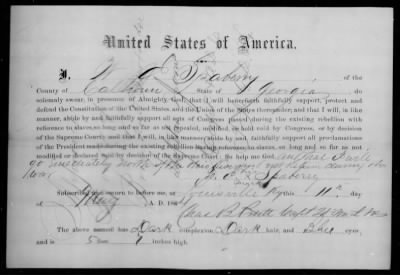 United States of America.
I, W. Seaberry of the
County of Calhoun State of Georgia do
solemnly swear, in presence of Almighty God, that I will henceforth faithfully support, protect and
defend the Constitution of the United States, and the Union of the States thereunder; and that I will, in like
manner, abide by and faithfully support all acts of Congress passed during the existing rebellion with
reference to slaves, so long and so far as not repealed, modified, or held void by Congress, or by decision
of the Supreme Court; and that I will, in like manner, abide by and faithfully support all proclamations
of the President made during the existing rebellion having reference to slaves, so long and so far as not
modified or declared void by decision of the Supreme Court: So help me God. and that I will
go immediately north of the Ohio River and not return during the
War
Seaberry
Subscribed and sworn to before me, at Louisville Ky this 11th day
of Aug A. D. 186
Chas B Pratt Capt
The above named has Dark complexion, Dark hair, and Blue eyes,
and is 5 feet 7 inches high.